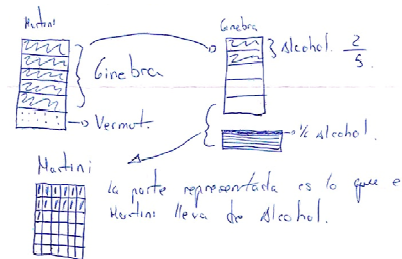 Martini
Ginebra
Alcohol. 2/5.
Ginebra
Vermut.
Alcohol.
Martini
la parte representada es lo que e
Martini lleva de Alcohol.